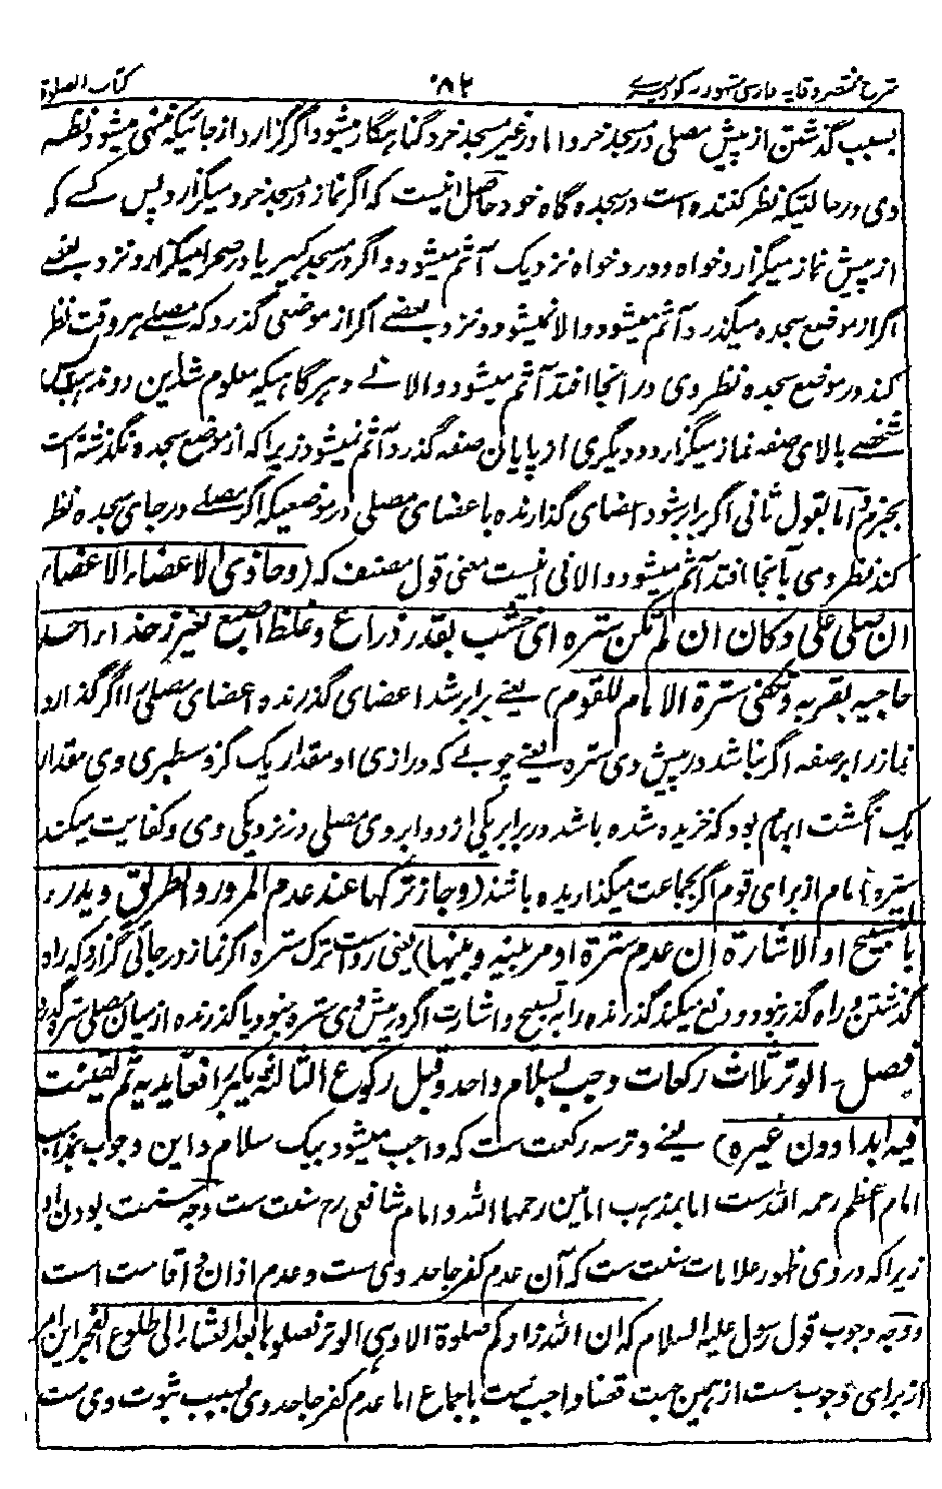 شرح مختصر وقایه فارسی مشهور به کور میری ۸۲ کتاب الصلوة
بسبب گذشتن از پیش مصلی در مسجد خرد و اما در غیر مسجد خرد گناهگار میشود اگر گزارد از جائیکه منتهی میشود نظر
وی در حالتیکه نظر کننده است در سجده گاه خود حاصل انیست که اگر نماز در مسجد خرد میگزارد پس کسے که
از پیش نماز میگزارد خواه دور و خواه نزدیک آثم میشود و اگر در مسجد کبیر یا در صحرا میگزارد و نزد بعضے
اگر از موضع سجده میگذرد آثم میشود و الا نمیشود و نزد بعضے اگر از موضعی گذرد که مصلے هر وقت نظر
کند در موضع سجده نظر وی در انجا افتد آثم میشود و الا نے و هرگاهیکه معلوم شد این دو مذهب پس
شخصے بالای صفه نماز میگزارد و دیگری از پایان صفه گذرد آثم نمیشود زیرا که از موضع سجده نگذشته است
بجزم و اما بقول ثانی اگر برابر شود اعضای گذارنده با عضای مصلی در موضعیکه اگر مصلے در جای سجده نظر
کند نظر وی بآنجا افتد آثم میشود و الا نی انیست معنی قول مصنف که (و حاذی الاعضاء الاعضاء
ان صلی علی دکان ان لم تکن ستره ای خشب بقدر ذراع و غلظ اصبع تغرز حذاء احد
حاجبیه بقربه و تکفی سترة الامام للقوم) یعنے برابر شد اعضای گذرنده اعضای مصلی را اگر گذارد
نماز را بر صفه اگر نباشد در پیش وی ستره یعنے چوبے که درازی او مقدار یک گز و سطبری وی مقدار
یک انگشت ابهام بود که خزیده شده باشد در برابر یکی از دو ابروی مصلی در نزدیکی وی و کفایت میکند
ستره امام از برای قوم اگر بجماعت میگذاریده باشند (و جاز ترکها عند عدم المرور و الطریق و یدرء
بالتسبیح او الاشارة ان عدم سترة او مر بینه و بینها) یعنی رواست ترک ستره اگر نماز در جائی گزارد که راه
گذشتن و راه گذر نبود و دفع میکند گذرنده را به تسبیح و اشارت اگر در پیش وی ستره نبود یا گذرنده از میان مصلی و ستره گذرد
فصل۔ الوتر ثلاث رکعات وجب بسلام واحد و قبل رکوع الثالثة یکبر رافعا یدیه ثم یقنت
فیه ابدا دون غیره) یعنے وتر سه رکعت ست که واجب میشود بیک سلام و این وجوب بمذهب
امام اعظم رحمه الله ست اما بمذهب امامین رحمهما الله و امام شافعی رح سنت ست و وجه سنت بودن او
زیرا که در وی ظهور علامات سنت ست که آن عدم کفر جاحد وی ست و عدم اذان و اقامت است
و وجه وجوب قول رسول علیه السلام که ان الله زادکم صلوة الا وهی الوتر فصلوها بعد العشاء الی طلوع الفجر این امر
از برای وجوب ست از همین جهت قضا واجب ست باجماع اما عدم کفر جاحد وی بسبب ثبوت وی ست